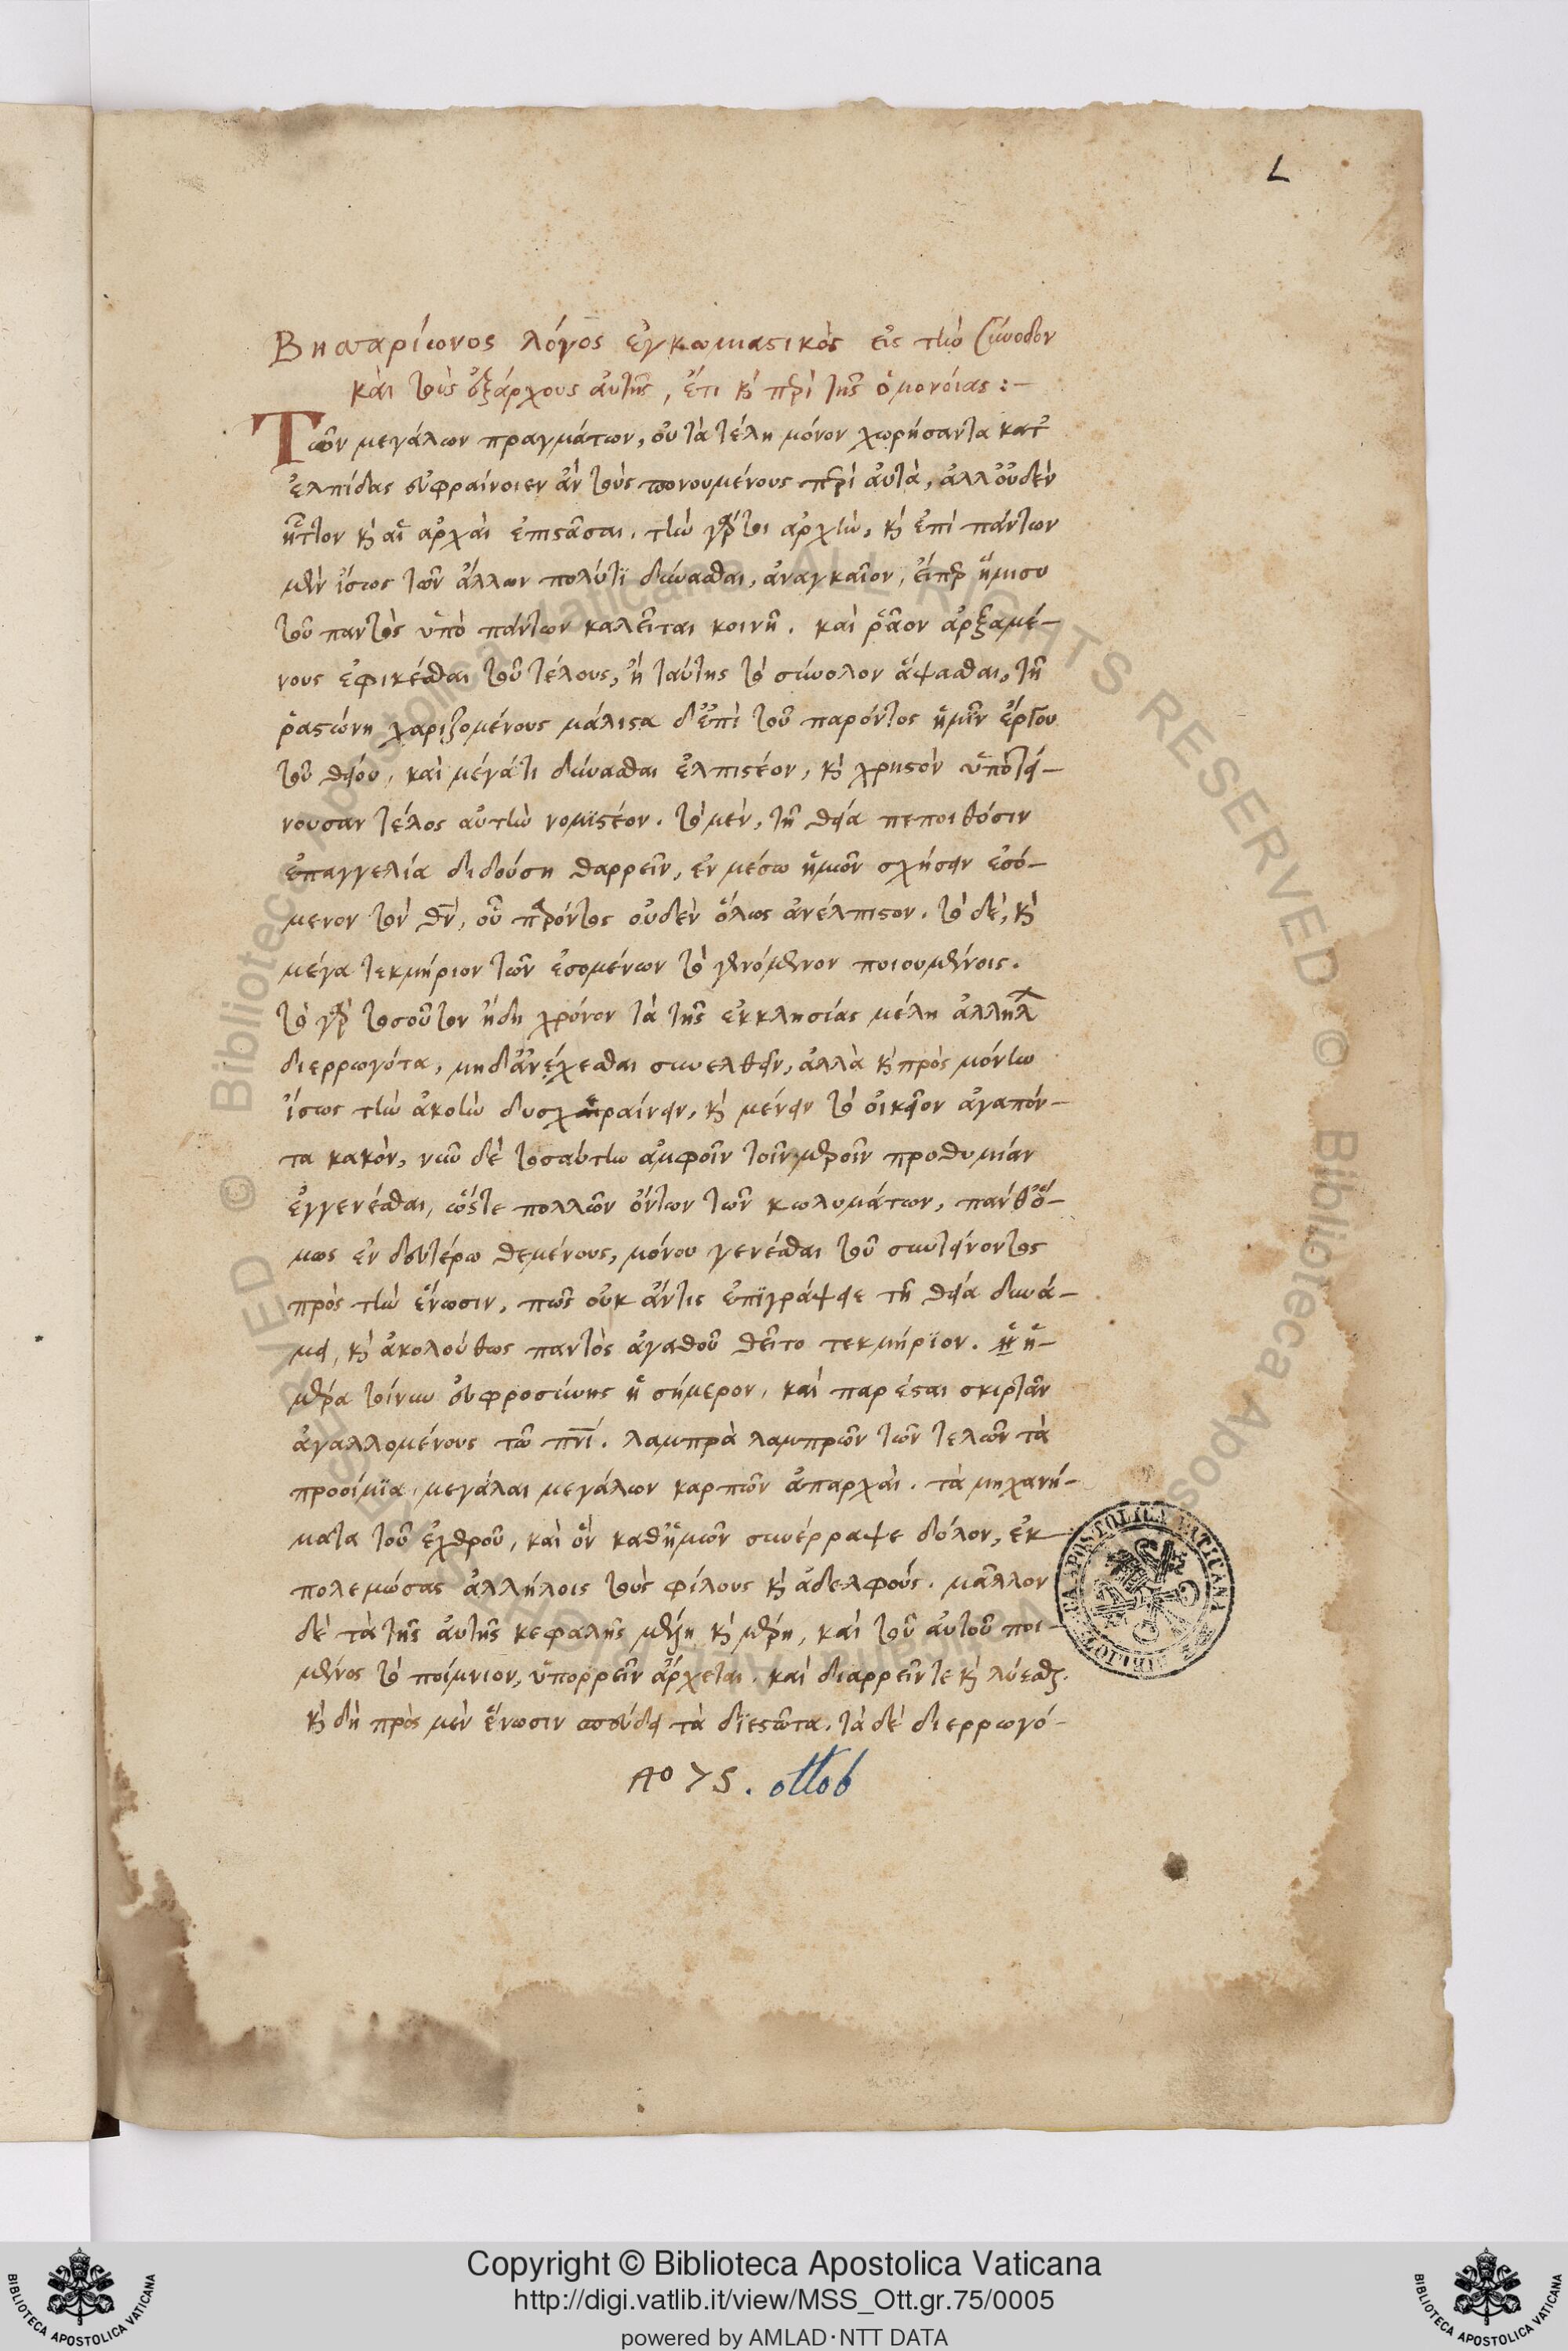 L
Βησσαρίωνος λόγος ἐγκωμιαστικὸς εἰς τὴν σύνοδον
καὶ τοὺς ἐξάρχους αὐτῆς, ἔτι κ̀ περὶ τῆς ὁμονοίας :—
Τῶν μεγάλων πραγμάτων, οὐ τὰ τέλη μόνον χωρήσαντα κατ'
ἐλπίδας εὐφραίνοιεν ἂν τοὺς πονουμένους περὶ αὐτὰ, ἀλλ' οὐδὲν
ἧττον κ̀ αἱ ἀρχαὶ ἐπιστᾶσαι. τὴν γάρ τοι ἀρχὴν, κ̀ ἐπὶ πάντων
μὲν ἴσως τῶν ἄλλων πολύ τι δύνασθαι, ἀναγκαῖον, εἴπερ ἥμισυ
τοῦ παντὸς ὑπὸ πάντων καλεῖται κοινῆ. καὶ ῥᾶον ἀρξαμέ-
νους ἐφικέσθαι τοῦ τέλους, ἢ ταύτης τὸ σύνολον ἅψασθαι, τῆ
ῥαστώνη χαριζομένους μάλιστα δ' ἐπὶ τοῦ παρόντος ἡμῖν ἔργου
τοῦ θείου, καὶ μέγά τι δύνασθαι ἐλπιστέον, κ̀ χρηστὸν ὑποτεί-
νουσαν τέλος αὐτὴν νομϊστέον. τὸ μὲν, τῆ θεία πεποιθόσιν
ἐπαγγελία διδούση θαρρεῖν, ἐν μέσω ἡμῶν σχήσειν ἐσό-
μενον τὸν θν, οὗ παρόντος οὐδὲν ὅλως ἀνέλπιστον. τὸ δὲ, κ̀
μέγα τεκμήριον τῶν ἐσομένων τὸ γενόμενον ποιουμένοις.
τὸ γὰρ τοσοῦτον ἤδη χρόνον τὰ τῆς ἐκκλησίας μέλη ἀλλήλ
διερρωγότα, μηδ' ἀνέχεσθαι συνελθεῖν, ἀλλὰ κ̀ πρὸς μόνην
ἴσως τὴν ἀκοὴν δυσχεραίνειν, κ̀ μένειν τὸ οἰκεῖον ἀγαπόν-
τα κακὸν, νῦν δὲ τοσαύτην ἀμφοῖν τοῖν μεροῖν προθυμίαν
ἐγγενέσθαι, ὥστε πολλῶν ὄντων τῶν κωλυμάτων, πάνθ' ὅ-
μως ἐν δευτέρω θεμένους, μόνου γενέσθαι τοῦ συντείνοντος
πρὸς τὴν ἕνωσιν, πῶς οὐκ ἄν τις ἐπϊγράψειε τῆ θεία δυνά-
μει, κ̀ ἀκολούθως παντὸς ἀγαθοῦ θεῖτο τεκμήρϊον. ἡ ἡ-
μέρα τοίνυν εὐφροσύνης ἡ σήμερον, καὶ παρέσται σκιρτᾶν
ἀγαλλομένους τῶ πνϊ. λαμπρὰ λαμπρῶν τῶν τελῶν τὰ
προοίμϊα, μεγάλαι μεγάλων καρπῶν ἀπαρχαὶ. τὰ μηχανή-
ματα τοῦ ἐχθροῦ, καὶ ὃν καθ' ἡμῶν συνέρραψε δόλον, ἐκ
πολεμώσας ἀλλήλοις τοὺς φίλους κ̀ ἀδελφούς. μᾶλλον
δὲ τὰ τῆς αὐτῆς κεφαλῆς μέλη κ̀ μέρη, καὶ τοῦ αὐτοῦ ποι-
μένος τὸ ποίμνιον, ὑπορρεῖν ἄρχεται. καὶ διαρρεῖν τε κ̀ λύεσθαι.
κ̀ δὴ πρὸς μὲν ἕνωσιν σπεύδει τὰ διεστῶτα. τὰ δὲ διερρωγό-
Aº 75. ottob
Copyright © Biblioteca Apostolica Vaticana
http://digi.vatlib.it/view/MSS_Ott.gr.75/0005
powered by AMLAD·NTT DATA